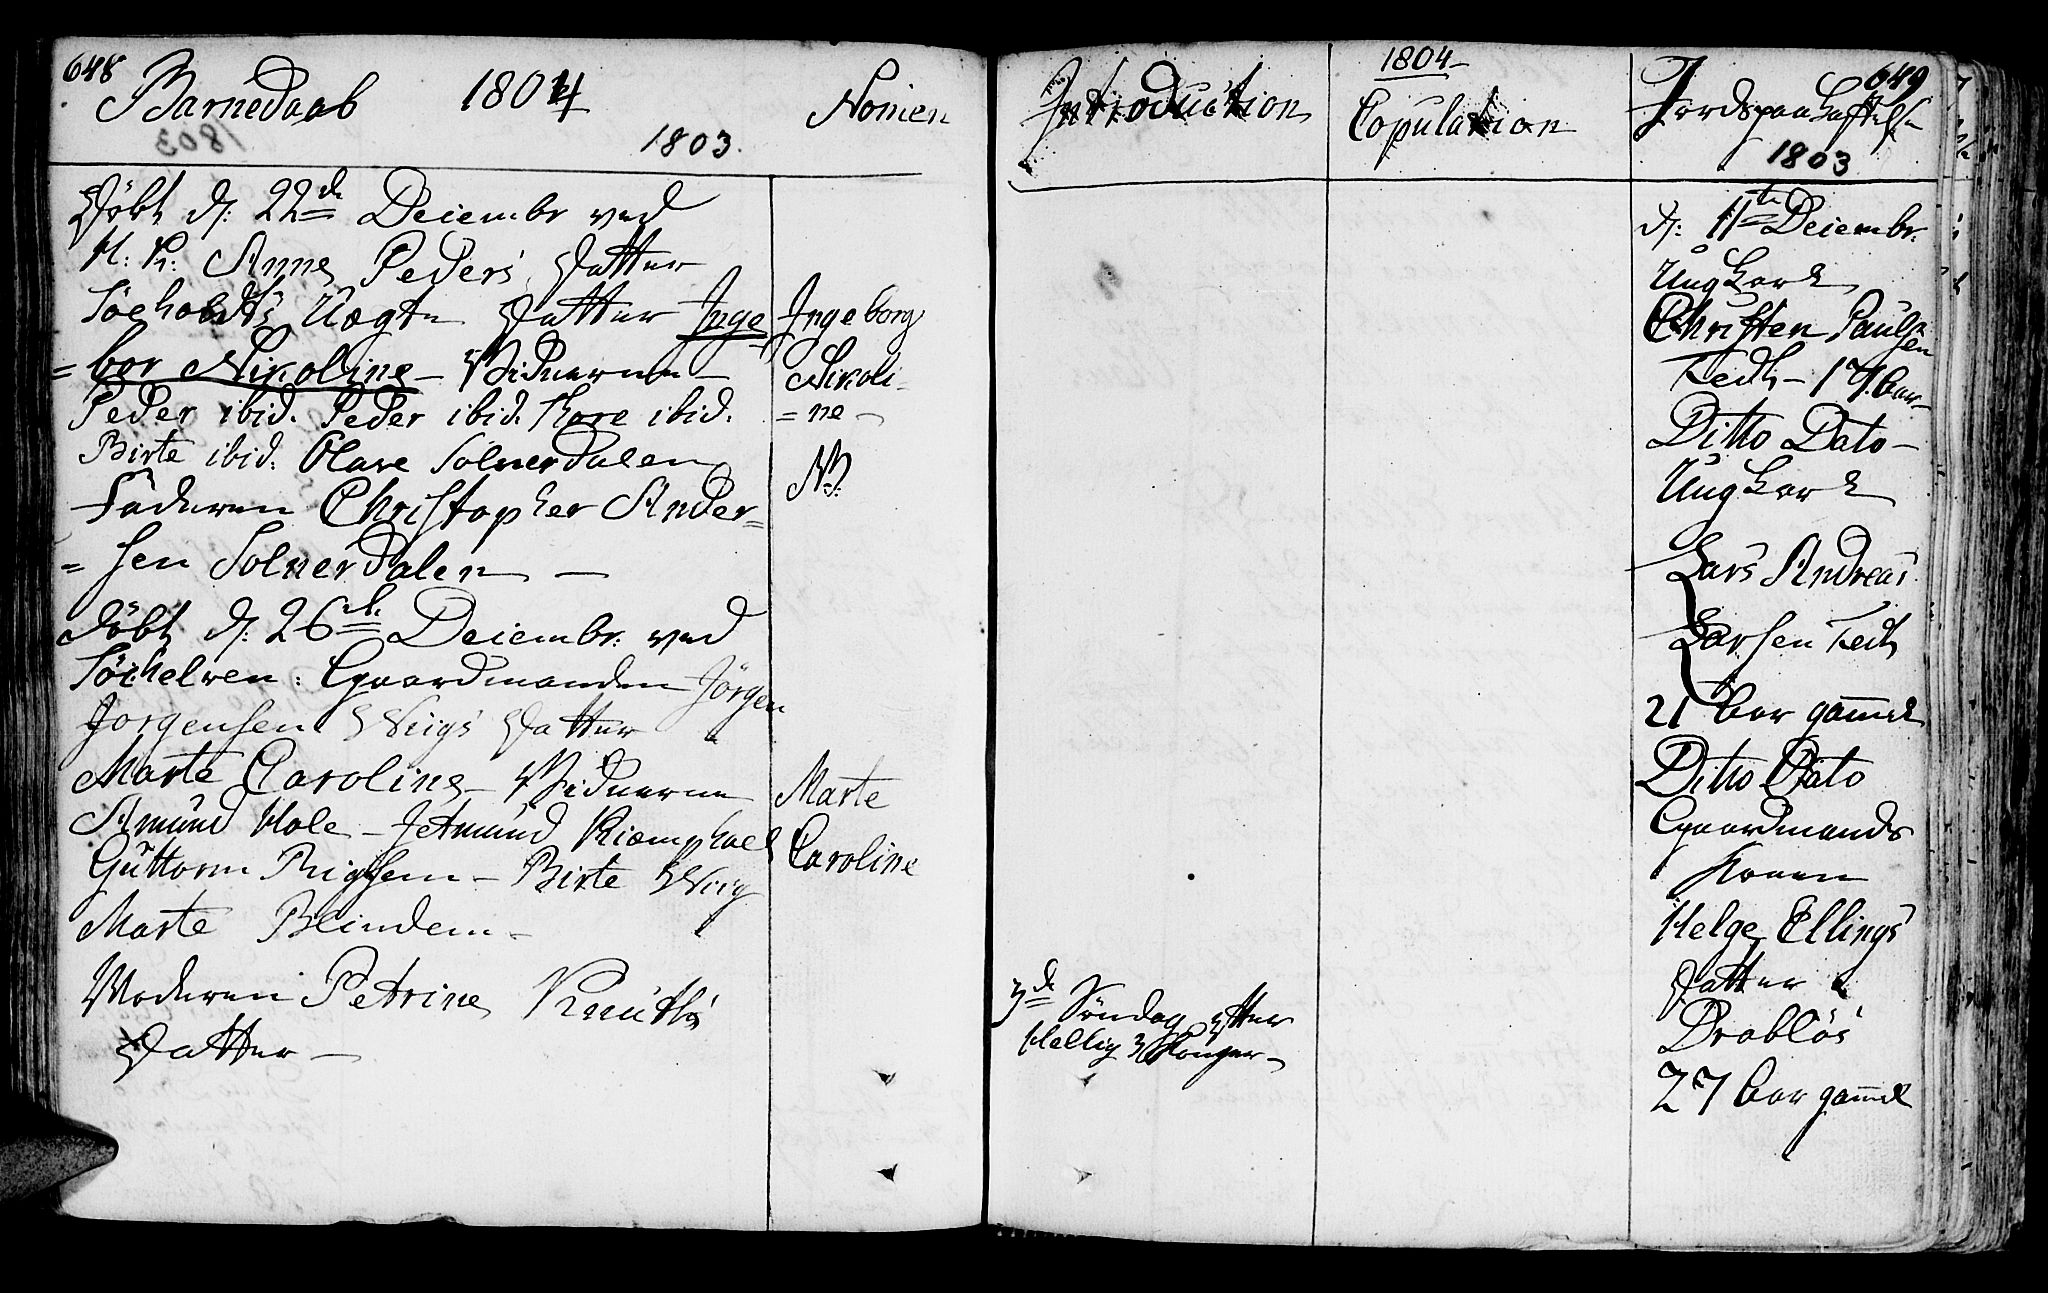 648
Barnedaab 1804 Nomen
1803.
Døbt d: 22de Decembr ved
H. K: Anne Peders Datter
Søeholdts Uægte Datter Inge
=bor Nikoline – Vidnerne –
Peder ibid. Peder ibid. Kare ibid.
Birte ibid: Olave Solnerdalen
Faderen Christopher Ander=
=sen Solnerdalen –
Ingeborg
Nikoli=
=ne –
NB:
Døbt d: 26de Decembr: ved
Søehelven: Gaardmanden Jörgen
Jorgensen Wiigs Datter
Marte Caroline – Vidnerne
Amund Hole – Jetmund Kiæmphoel
Guttorm Righem – Birte Wiig
Marte Blindem –
Moderen Petrine Knuts
Datter –
Marte
Caroline
Introduction
3de Søndag efter
Hellig 3 Konger –
1804–
Copulation
649
Jordspaakastelse
1803
d: 11te Decembr.
Ungkarl
Christen Paulsen
– 17 Aar –
Ditto Dato –
Ungkarl
Lars Andreas
Larsen
21 Aar gammel
Ditto Dato
Gaardmands
Konen
Helge Ellings
Datter
Drabløs
27 Aar gammel